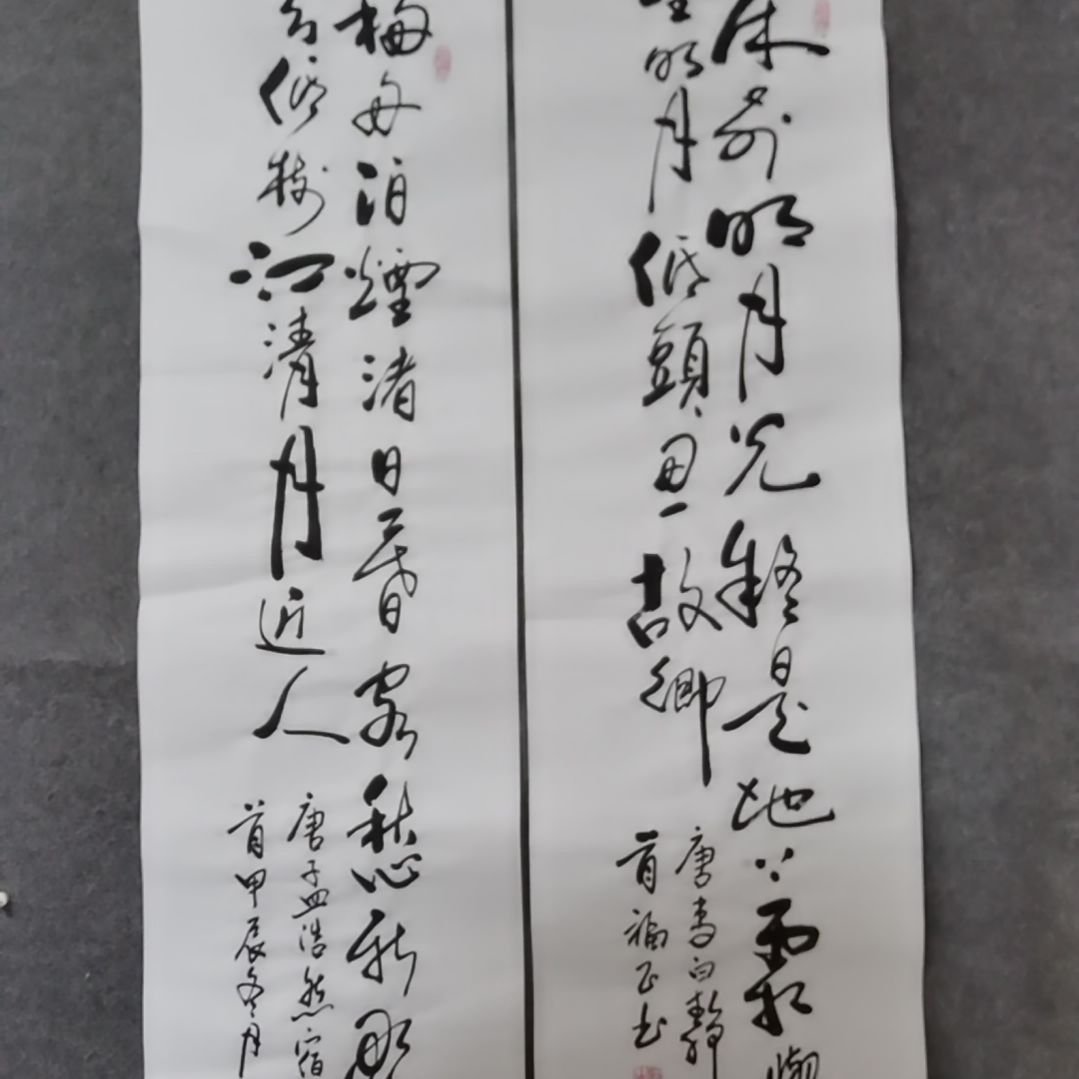 床前明月光疑是地上霜
望明月低頭思故鄉
唐李白靜
首福正书
移舟泊煙渚日暮客愁新野
低樹江清月近人
唐孟浩然宿
首甲辰冬月